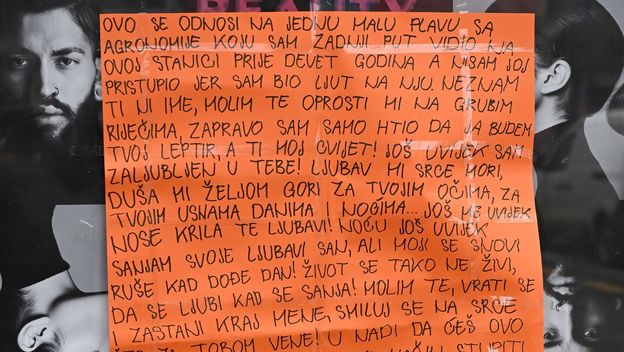 BEAUTY
OVO SE ODNOSI NA JEDNU MALU PLAVU SA
AGRONOMIJE KOJU SAM ZADNJI PUT VIDIO NA
OVOJ STANICI PRIJE DEVET GODINA A NISAM JOJ
PRISTUPIO JER SAM BIO LJUT NA NJU. NEZNAM
TI NI IME, MOLIM TE OPROSTI MI NA GRUBIM
RIJEČIMA, ZAPRAVO SAM SAMO HTIO DA JA BUDEM
TVOJ LEPTIR, A TI MOJ CVIJET! JOŠ UVIJEK SAM
ZALJUBLJEN U TEBE! LJUBAV MI SRCE MORI,
DUŠA MI ŽELJOM GORI ZA TVOJIM OČIMA, ZA
TVOJIM USNAMA DANIMA I NOĆIMA... JOŠ ME UVIJEK
NOSE KRILA TE LJUBAVI! NOĆU JOŠ UVIJEK
SANJAM SVOJE LJUBAVI SAN, ALI MOJI SE SNOVI
RUŠE KAD DOĐE DAN! ŽIVOT SE TAKO NE ŽIVI,
DA SE LJUBI KAD SE SANJA! MOLIM TE, VRATI SE
I ZASTANI KRAJ MENE, SMILUJ SE NA SRCE
ŠTO ZA TOBOM VENE! U NADI DA ĆEŠ OVO
STUPITI